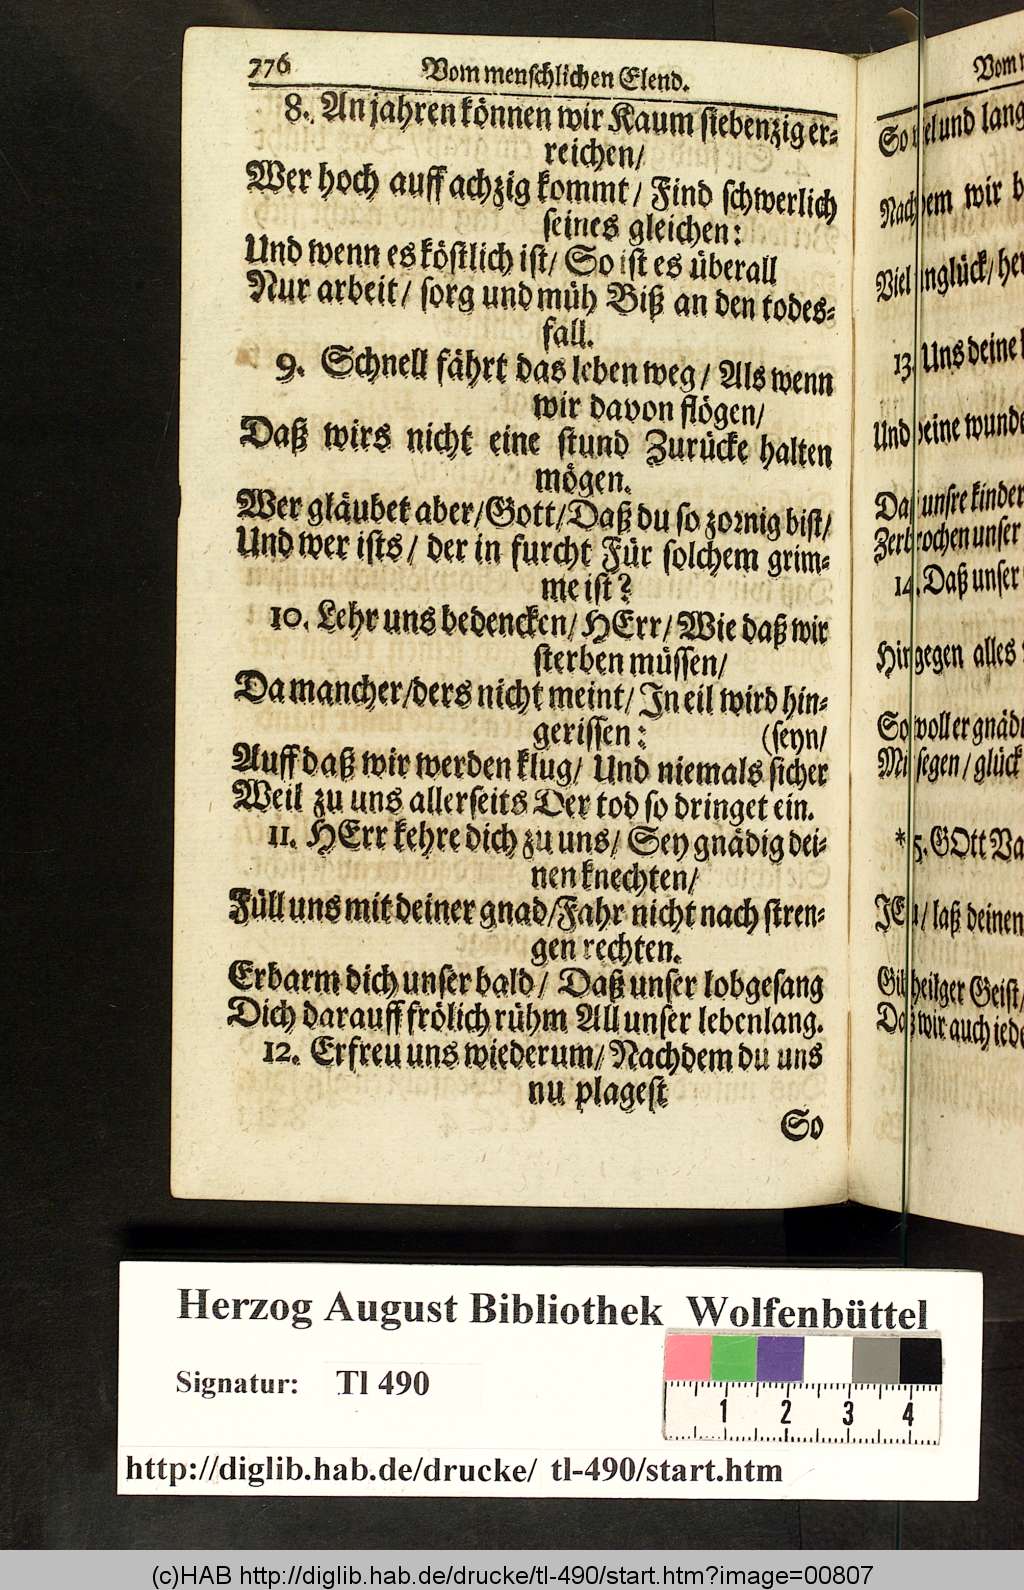 776 Vom menschlichen Elend.
8. An jahren können wir Kaum siebenzig er-
reichen/
Wer hoch auff achzig kommt/ Find schwerlich
seines gleichen:
Und wenn es köstlich ist/ So ist es überall
Nur arbeit/ sorg und müh Biß an den todes-
fall.
9. Schnell fährt das leben weg/ Als wenn
wir davon flögen/
Daß wirs nicht eine stund Zurücke halten
mögen.
Wer gläubet aber/ Gott/ Daß du so zornig bist/
Und wer ists/ der in furcht Für solchem grim-
me ist?
10. Lehr uns bedencken/ HErr/ Wie daß wir
sterben müssen/
Da mancher/ ders nicht meint/ In eil wird hin-
gerissen: (seyn/
Auff daß wir werden klug/ Und niemals sicher
Weil zu uns allerseits Der tod so dringet ein.
11. HErr kehre dich zu uns/ Sey gnädig dei-
nen knechten/
Füll uns mit deiner gnad/ Fahr nicht nach stren-
gen rechten.
Erbarm dich unser bald/ Daß unser lobgesang
Dich darauff frölich rühm All unser lebenlang.
12. Erfreu uns wiederum/ Nachdem du uns
nu plagest
So
Vom
So viel und lang
Nachdem wir
Viel unglück/
13. Uns deine
Und deine
Daß unsre kinder
Zerbrochen unser
14. Daß unser
Hingegen alles
So woll er
Mit segen/ glück
*15. GOtt
JEsu/ laß deinen
Gib heilger Geist/
Daß wir auch
Herzog August Bibliothek Wolfenbüttel
Signatur: Tl 490
1 2 3 4
http://diglib.hab.de/drucke/ tl-490/start.htm
(c)HAB http://diglib.hab.de/drucke/tl-490/start.htm?image=00807